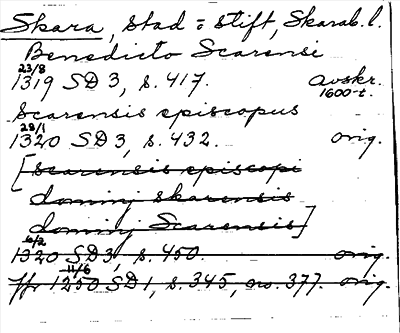 Skara, stad o stift, Skarab. l.
Benedicto Scarensi
23/8
1319 SD 3, s. 417. Avskr.
1600-t.
Scarensis episcopus
28/1
1320 SD 3, s. 432. orig.
[scarensis episcopi
dominj skarensis
dominj Scarensis]
6/2
1320 SD 3, s. 450. orig.
11/6
ffr 1250 SD 1, s. 345, no. 377. orig.